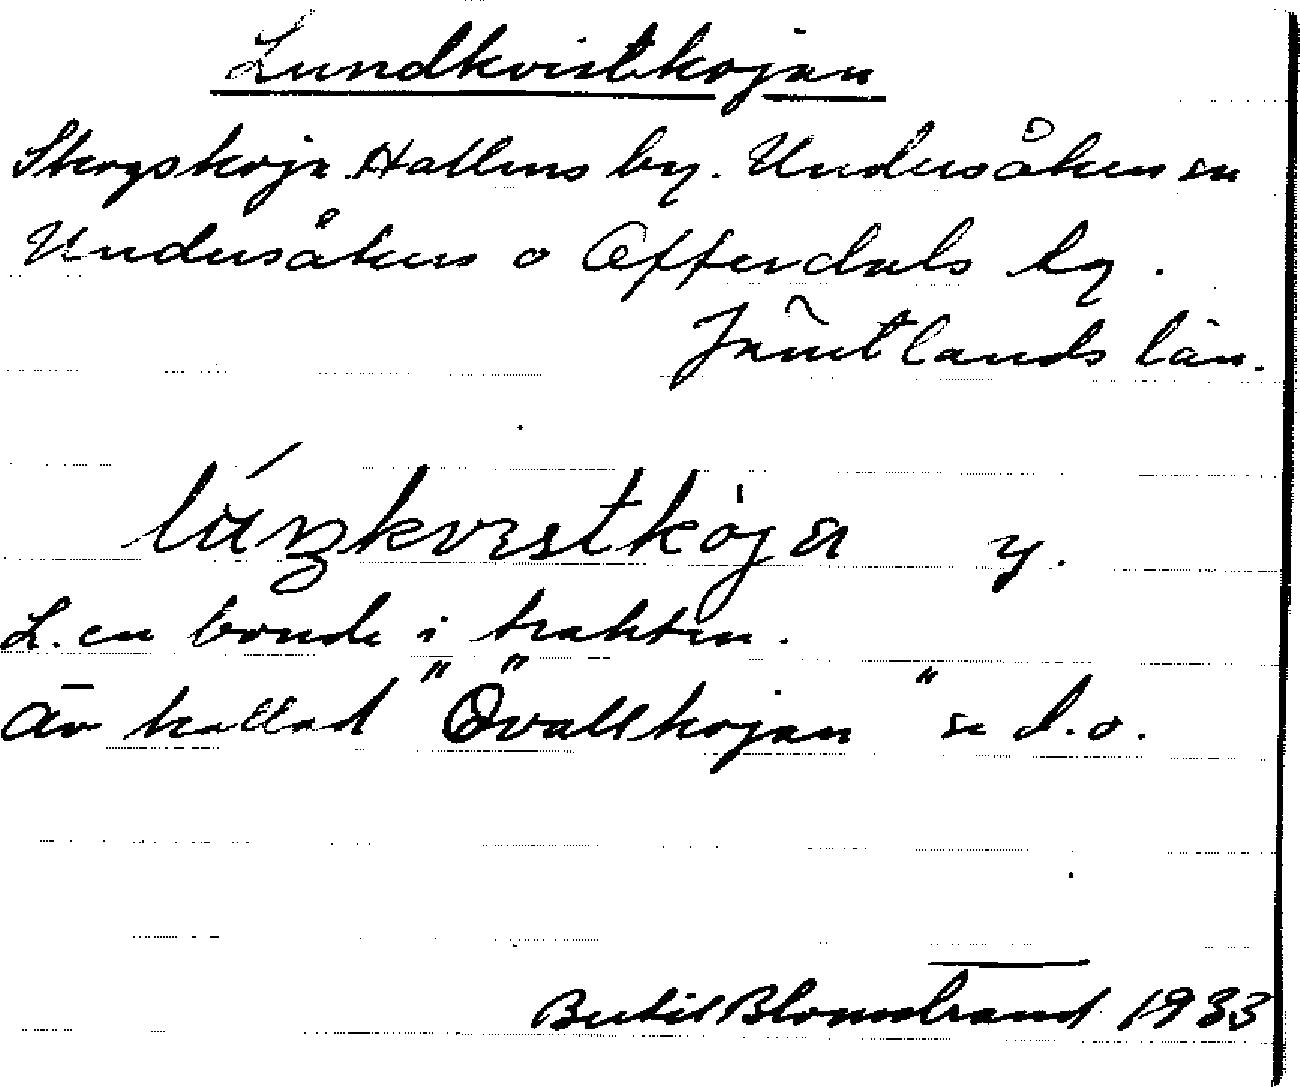 Lundkvistkojan
Skogskoja Hallens by. Undersåkers sn
Undersåkers o Offerdals tg.
Jämtlands län.
y.
L. en bonde i trakten.
Äv kallad "Övallkojan" se d.o.
Bertil Blomstrand 1933